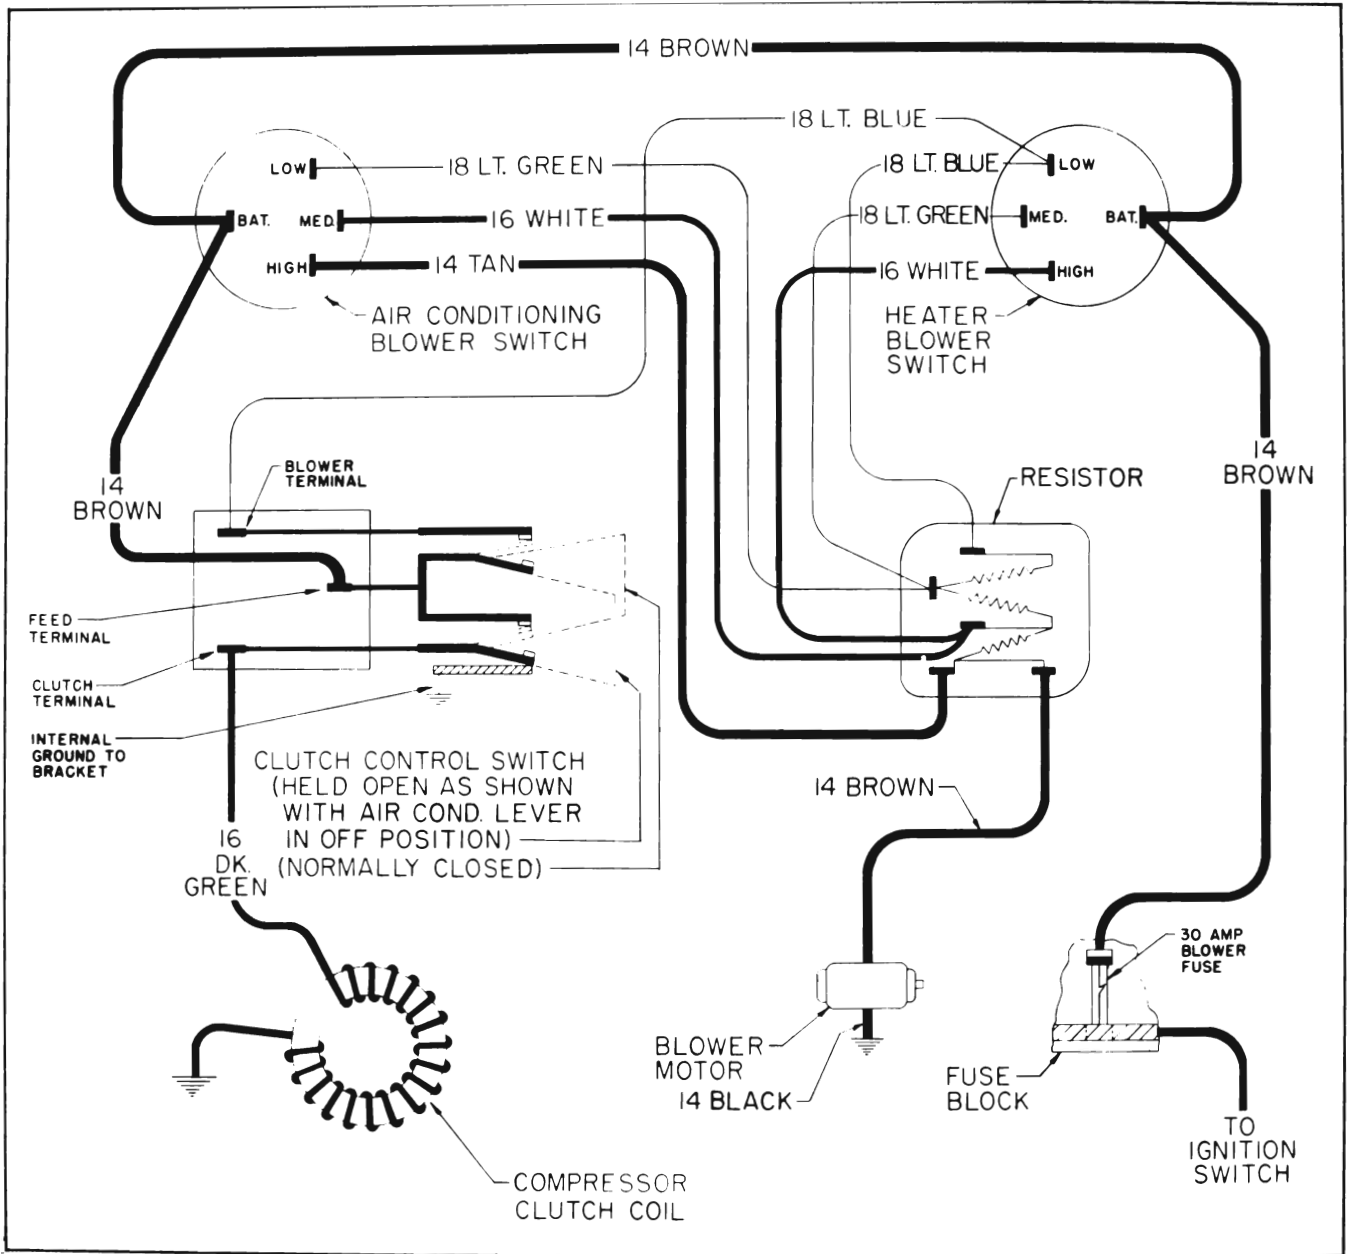 14 BROWN
18 LT. BLUE
LOW
18 LT. GREEN
18 LT. BLUE
LOW
BAT.
MED.
16 WHITE
18 LT. GREEN
MED.
BAT.
HIGH
14 TAN
16 WHITE
HIGH
AIR CONDITIONING
BLOWER SWITCH
HEATER
BLOWER
SWITCH
BLOWER
TERMINAL
14
BROWN
RESISTOR
14
BROWN
FEED
TERMINAL
CLUTCH
TERMINAL
INTERNAL
GROUND TO
BRACKET
CLUTCH CONTROL SWITCH
(HELD OPEN AS SHOWN
WITH AIR COND. LEVER
IN OFF POSITION)
(NORMALLY CLOSED)
14 BROWN
16
DK.
GREEN
30 AMP
BLOWER
FUSE
BLOWER
MOTOR
14 BLACK
FUSE
BLOCK
TO
IGNITION
SWITCH
COMPRESSOR
CLUTCH COIL